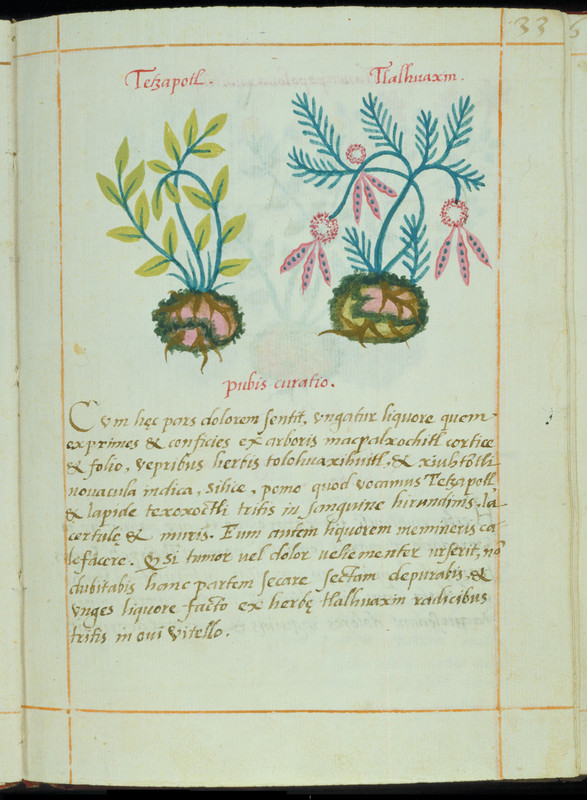 33
Tetzapotl.
Tlalhuaxin.
pubis curatio.
Cum hęc pars dolorem sentit, ungatur liquore quem
exprimes & conficies ex arboris macpalxochitl cortice
& folio, vepribus herbis tolohuaxihuitl, & xiuhtotli
novacula indica, silice, pomo quod vocamus Tetzapotl
& lapide texoxoctli tritis in sanguine hirundinis, la
certulę & muris. Eum autem liquorem memineris ca
lefacere. Q si tumor vel dolor vehementer urserit, nō
dubitabis hanc partem secare sectam depurabis, &
unges liquore facto ex herbę tlalhuaxin radicibus
tritis in ovi vitello.